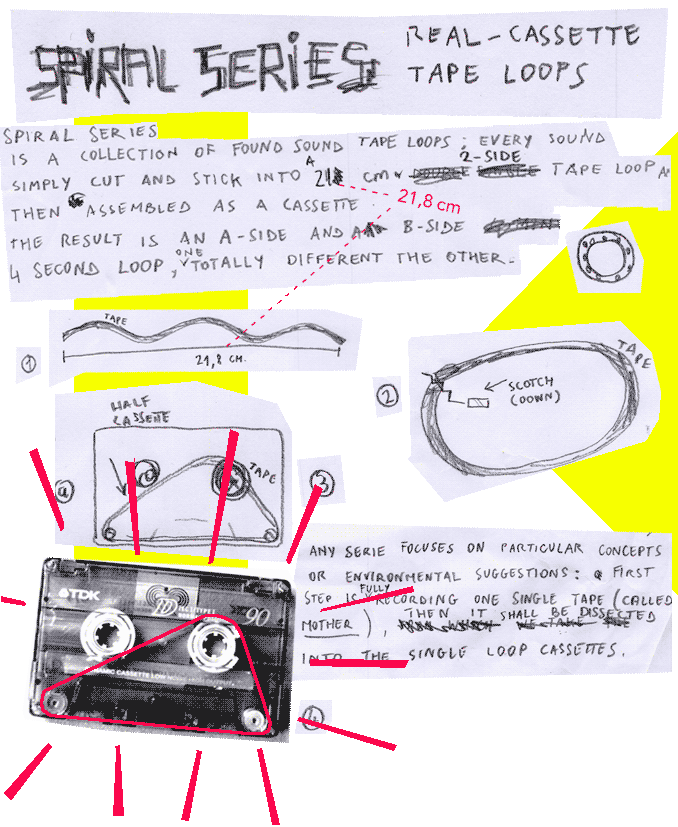 SPIRAL SERIES
REAL-CASSETTE
TAPE LOOPS
SPIRAL SERIES
IS A COLLECTION OF FOUND SOUND TAPE LOOPS; EVERY SOUND
SIMPLY CUT AND STICK INTO A 21 cm 2-SIDE TAPE LOOP
21,8 cm
THEN ASSEMBLED AS A CASSETTE
THE RESULT IS AN A-SIDE AND B-SIDE
4 SECOND LOOP, ONE TOTALLY DIFFERENT THE OTHER.
TAPE
21,8 CM.
1
TAPE
2
SCOTCH
(DOWN)
HALF
CASSETTE
TAPE
3
ANY SERIE FOCUSES ON PARTICULAR CONCEPTS
OR ENVIRONMENTAL SUGGESTIONS: FIRST
STEP IS FULLY RECORDING ONE SINGLE TAPE (CALLED
MOTHER), THEN IT SHALL BE DISSECTED
INTO THE SINGLE LOOP CASSETTES.
TDK
D
90
CASSETTE
4